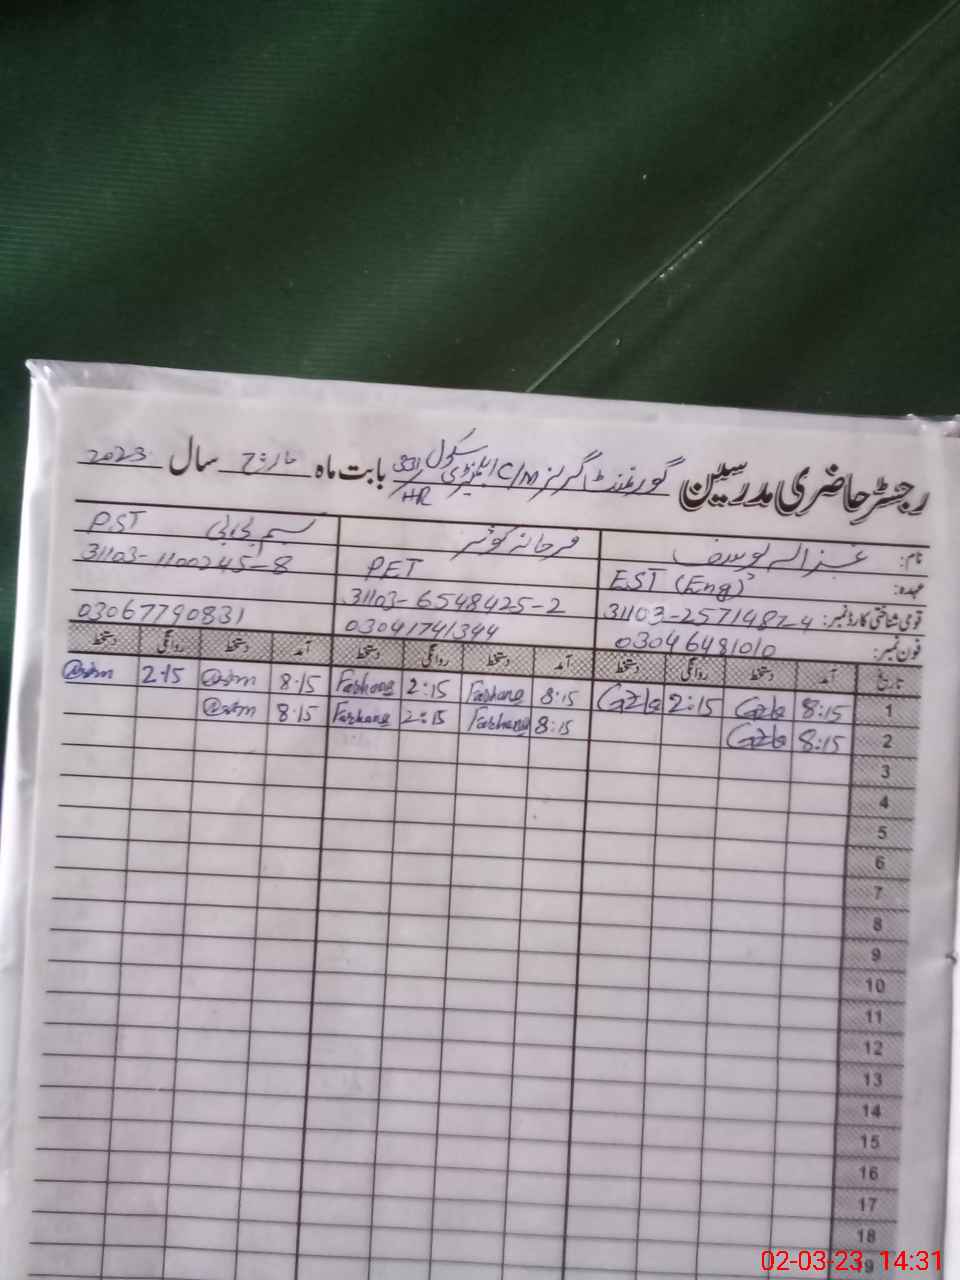 رجسٹر حاضری مدرسین گورنمنٹ گرلز C/M ایلیمنٹری سکول 331/HR بابت ماہ مارچ سال 2023
نام: غزالہ یوسف فرحانہ کوثر نسیم بی بی
عہدہ: EST (Eng) PET PST
قومی شناختی کارڈ نمبر: 31103-2571487-4 31103-6548425-2 31103-1100245-8
فون نمبر: 03046481010 03041741344 03067790831
تاریخ آمد دستخط روانگی دستخط آمد دستخط روانگی دستخط آمد دستخط روانگی دستخط
1 8:15 2:15 8:15 Farhana 2:15 Farhana 8:15 2:15
2 8:15 8:15 Farhana 2:15 Farhana 8:15
3
4
5
6
7
8
9
10
11
12
13
14
15
16
17
18
19
02-03-23 14:31